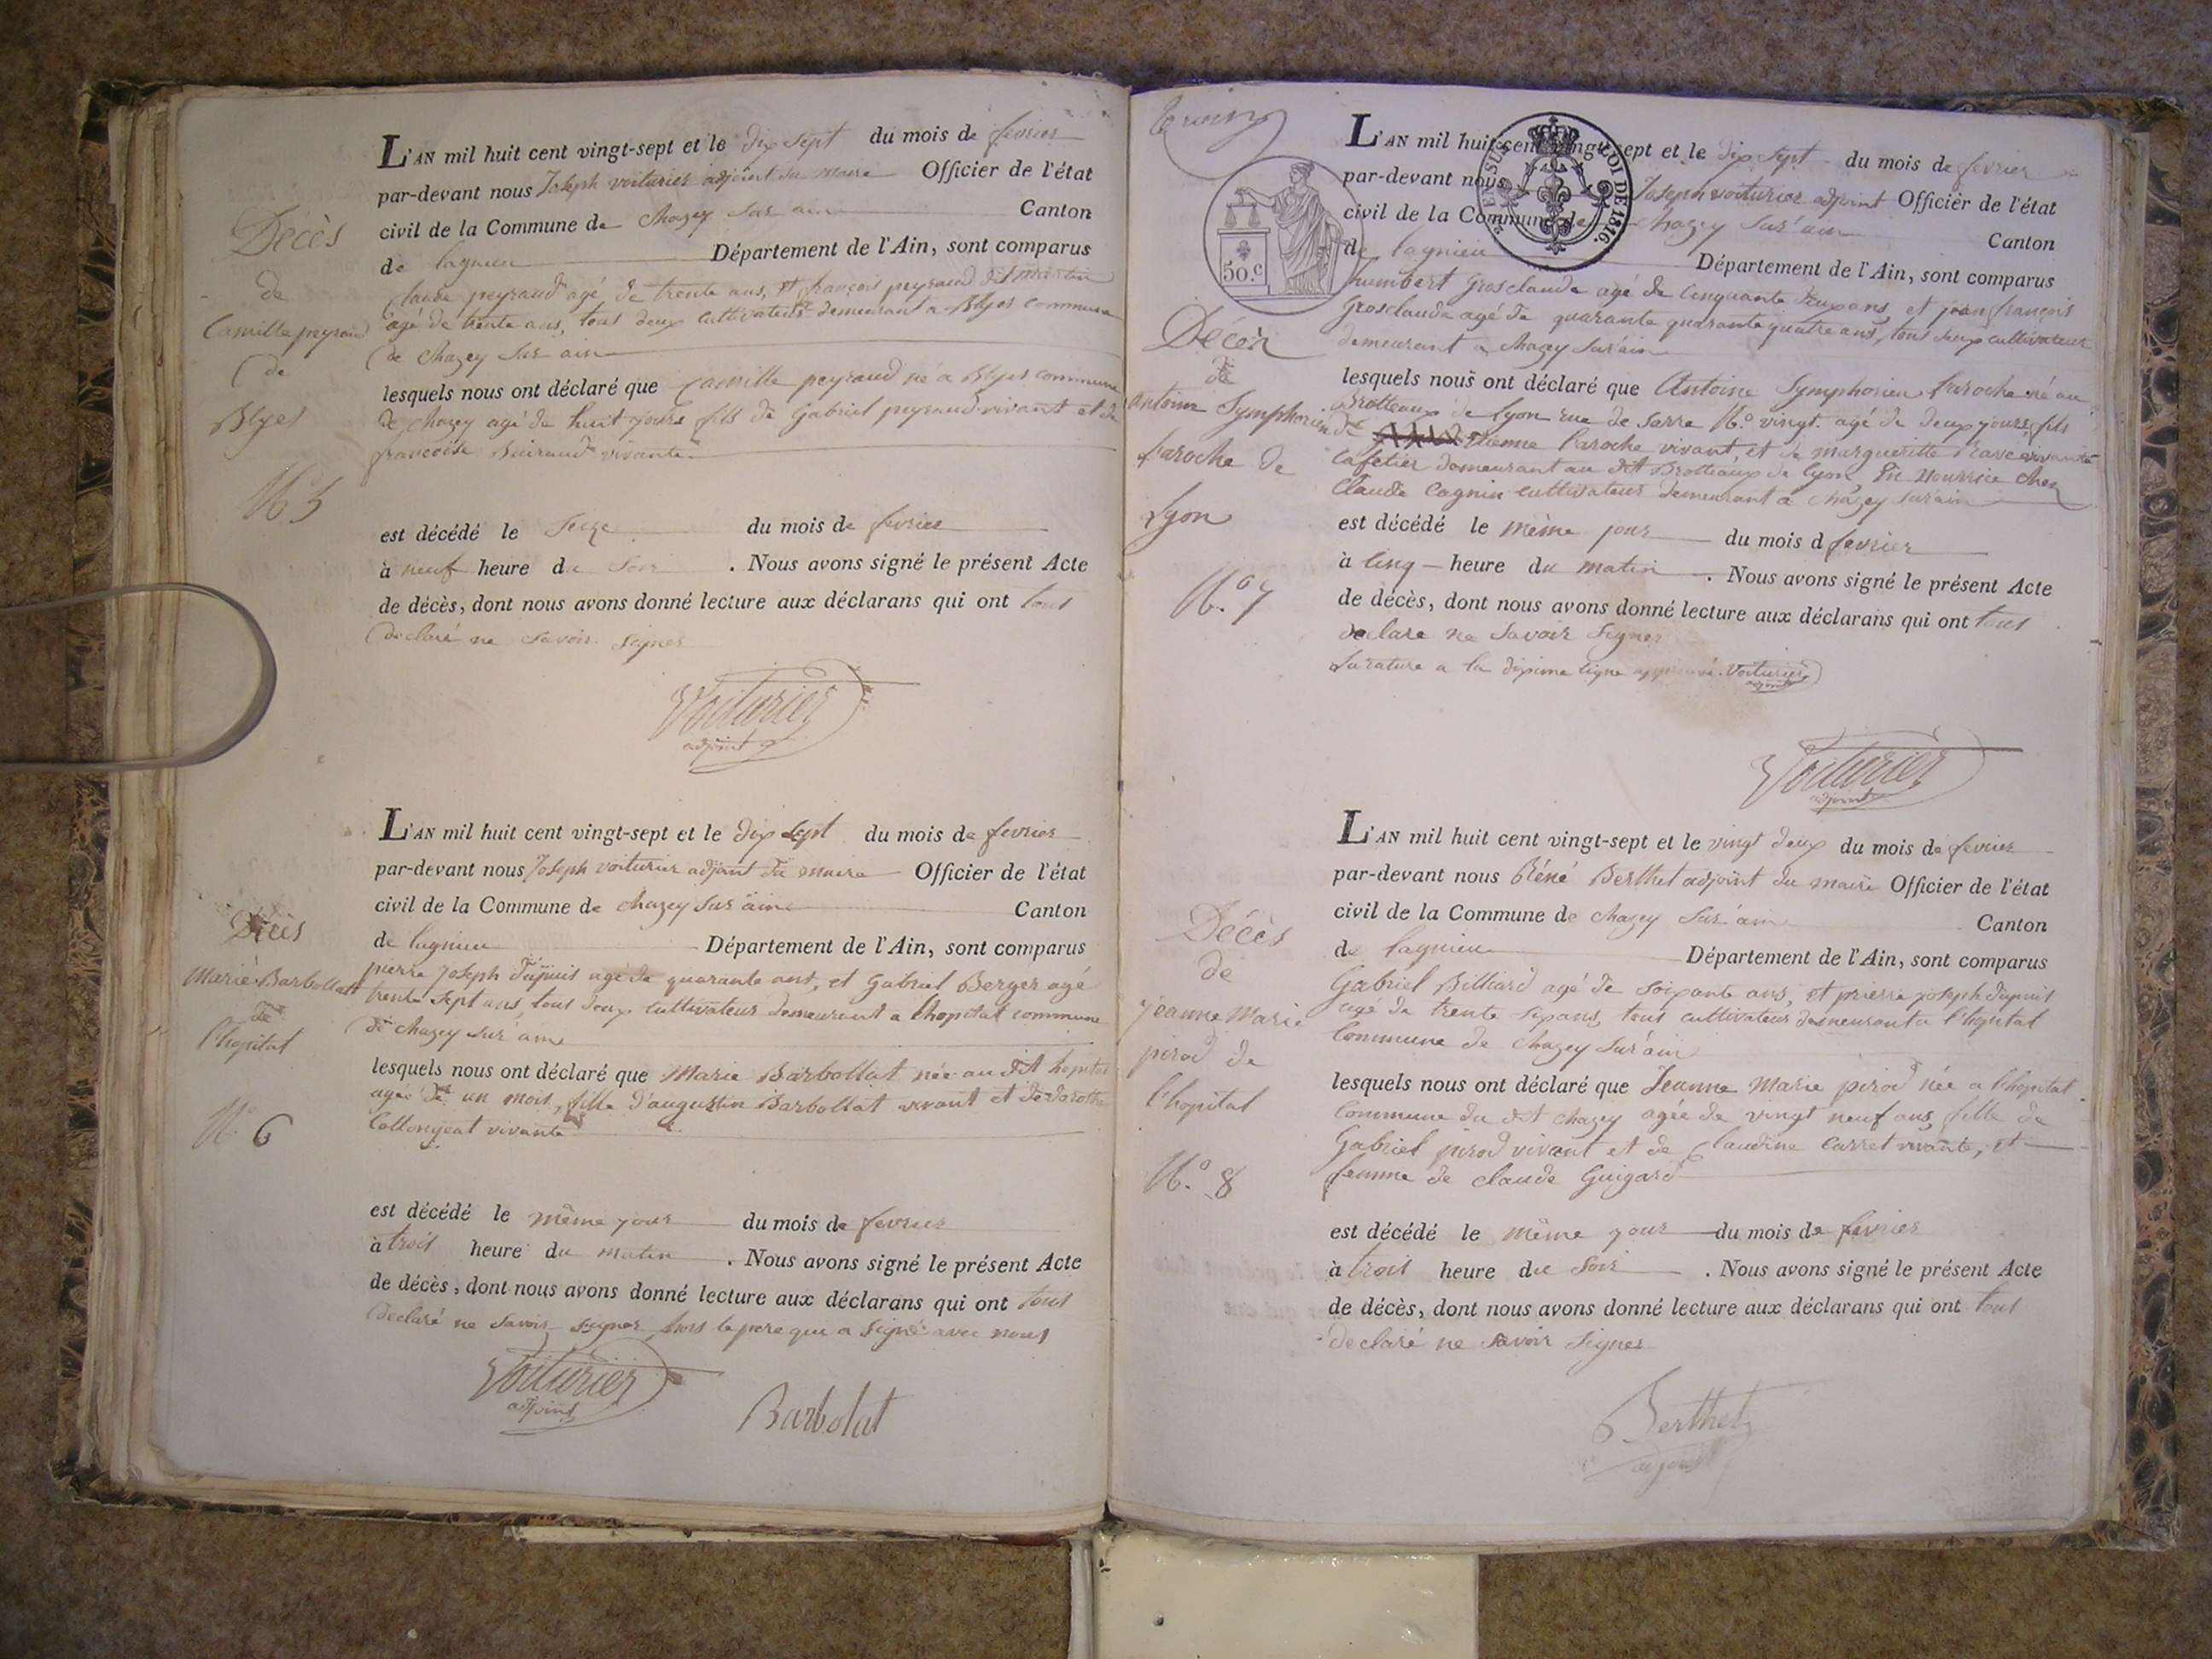 L'AN mil huit cent vingt-sept et le dix sept du mois de fevrier
par-devant nous Joseph voiturier adjoint du maire Officier de l'état
civil de la Commune de chazey sur ain Canton
de lagnieu Département de l'Ain, sont comparus
claude peyraud agé de trente ans, et françois peyraud dit martin
agé de trente ans, tous deux cultivateurs demeurant a Blyes commune
de chazey sur ain
lesquels nous ont déclaré que Camille peyraud né a Blyes commune
de chazey agé de huit jours fils de Gabriel peyraud vivant et de
françoise Buiraud vivante
est décédé le seize du mois de fevrier
à neuf heure du soir . Nous avons signé le présent Acte
de décès, dont nous avons donné lecture aux déclarans qui ont tous
declaré ne savoir signer
Voiturier
adjoint
Décès
de
Camille peyraud
de
Blyes
N° 5
L'AN mil huit cent vingt-sept et le dix sept du mois de fevrier
par-devant nous Joseph voiturier adjoint du maire Officier de l'état
civil de la Commune de chazey sur ain Canton
de lagnieu Département de l'Ain, sont comparus
pierre joseph dupuis agé de quarante ans, et Gabriel Berger agé
trente sept ans, tous deux cultivateur demeurant a lhopital commune
de chazey sur ain
lesquels nous ont déclaré que Marie Barbollat née au dit hopital
agée de un mois, fille d'augustin Barbollat vivant et de dorothe
Collongeat vivante
est décédé le même jour du mois de fevrier
à trois heure du matin . Nous avons signé le présent Acte
de décès, dont nous avons donné lecture aux déclarans qui ont tous
declaré ne savoir signer hors le pere qui a signé avec nous
Voiturier
adjoint
Barbolat
Décès
Marie Barbollat
de
l'hopital
N° 6
50.c
ET SUP.
LOI DE 1816.
L'AN mil huit cent vingt-sept et le dix sept du mois de fevrier
par-devant nous Joseph voiturier adjoint Officier de l'état
civil de la Commune de chazey sur ain Canton
de lagnieu Département de l'Ain, sont comparus
humbert Grosclaude agé de cinquante deux ans, et jean françois
Grosclaude agé de quarante quarante quatre ans, tous deux cultivateur
demeurant a chazey sur ain
lesquels nous ont déclaré que Antoine Symphorien Laroche né au
Brotteaux de Lyon rue de serre N.° vingt. agé de deux jours, fils
de etienne Laroche vivant, et de margueritte vivante
cafetier demeurant au dit Brotteaux de lyon, En nourrice chez
Claude Cagnin cultivateur demeurant a chazey sur ain
est décédé le même jour du mois d fevrier
à cinq heure du matin . Nous avons signé le présent Acte
de décès, dont nous avons donné lecture aux déclarans qui ont tous
declare ne savoir signer
La rature a la dixieme ligne approuvé. Voiturier
adjoint
Voiturier
adjoint
Décès
de
antoine Symphorien
Laroche de
Lyon
N.° 7
L'AN mil huit cent vingt-sept et le vingt deux du mois de fevrier
par-devant nous Réné Berthet adjoint du maire Officier de l'état
civil de la Commune de chazey sur ain Canton
de lagnieu Département de l'Ain, sont comparus
Gabriel Billiard agé de soixante ans, et pierre joseph dupuit
agé de trente six ans, tous cultivateur demeurant a l'hopital
Commune de chazey sur ain
lesquels nous ont déclaré que Jeanne Marie pirod née a l'hopital
Commune du dit chazey agée de vingt neuf ans, fille de
Gabriel pirod vivant et de Claudine Carret vivante, et
femme de claude Guigard
est décédé le même jour du mois de fevrier
à trois heure du soir . Nous avons signé le présent Acte
de décès, dont nous avons donné lecture aux déclarans qui ont tous
declaré ne savoir signer
Berthet
adjoint
Décès
de
jeanne Marie
pirod de
l'hopital
N.° 8